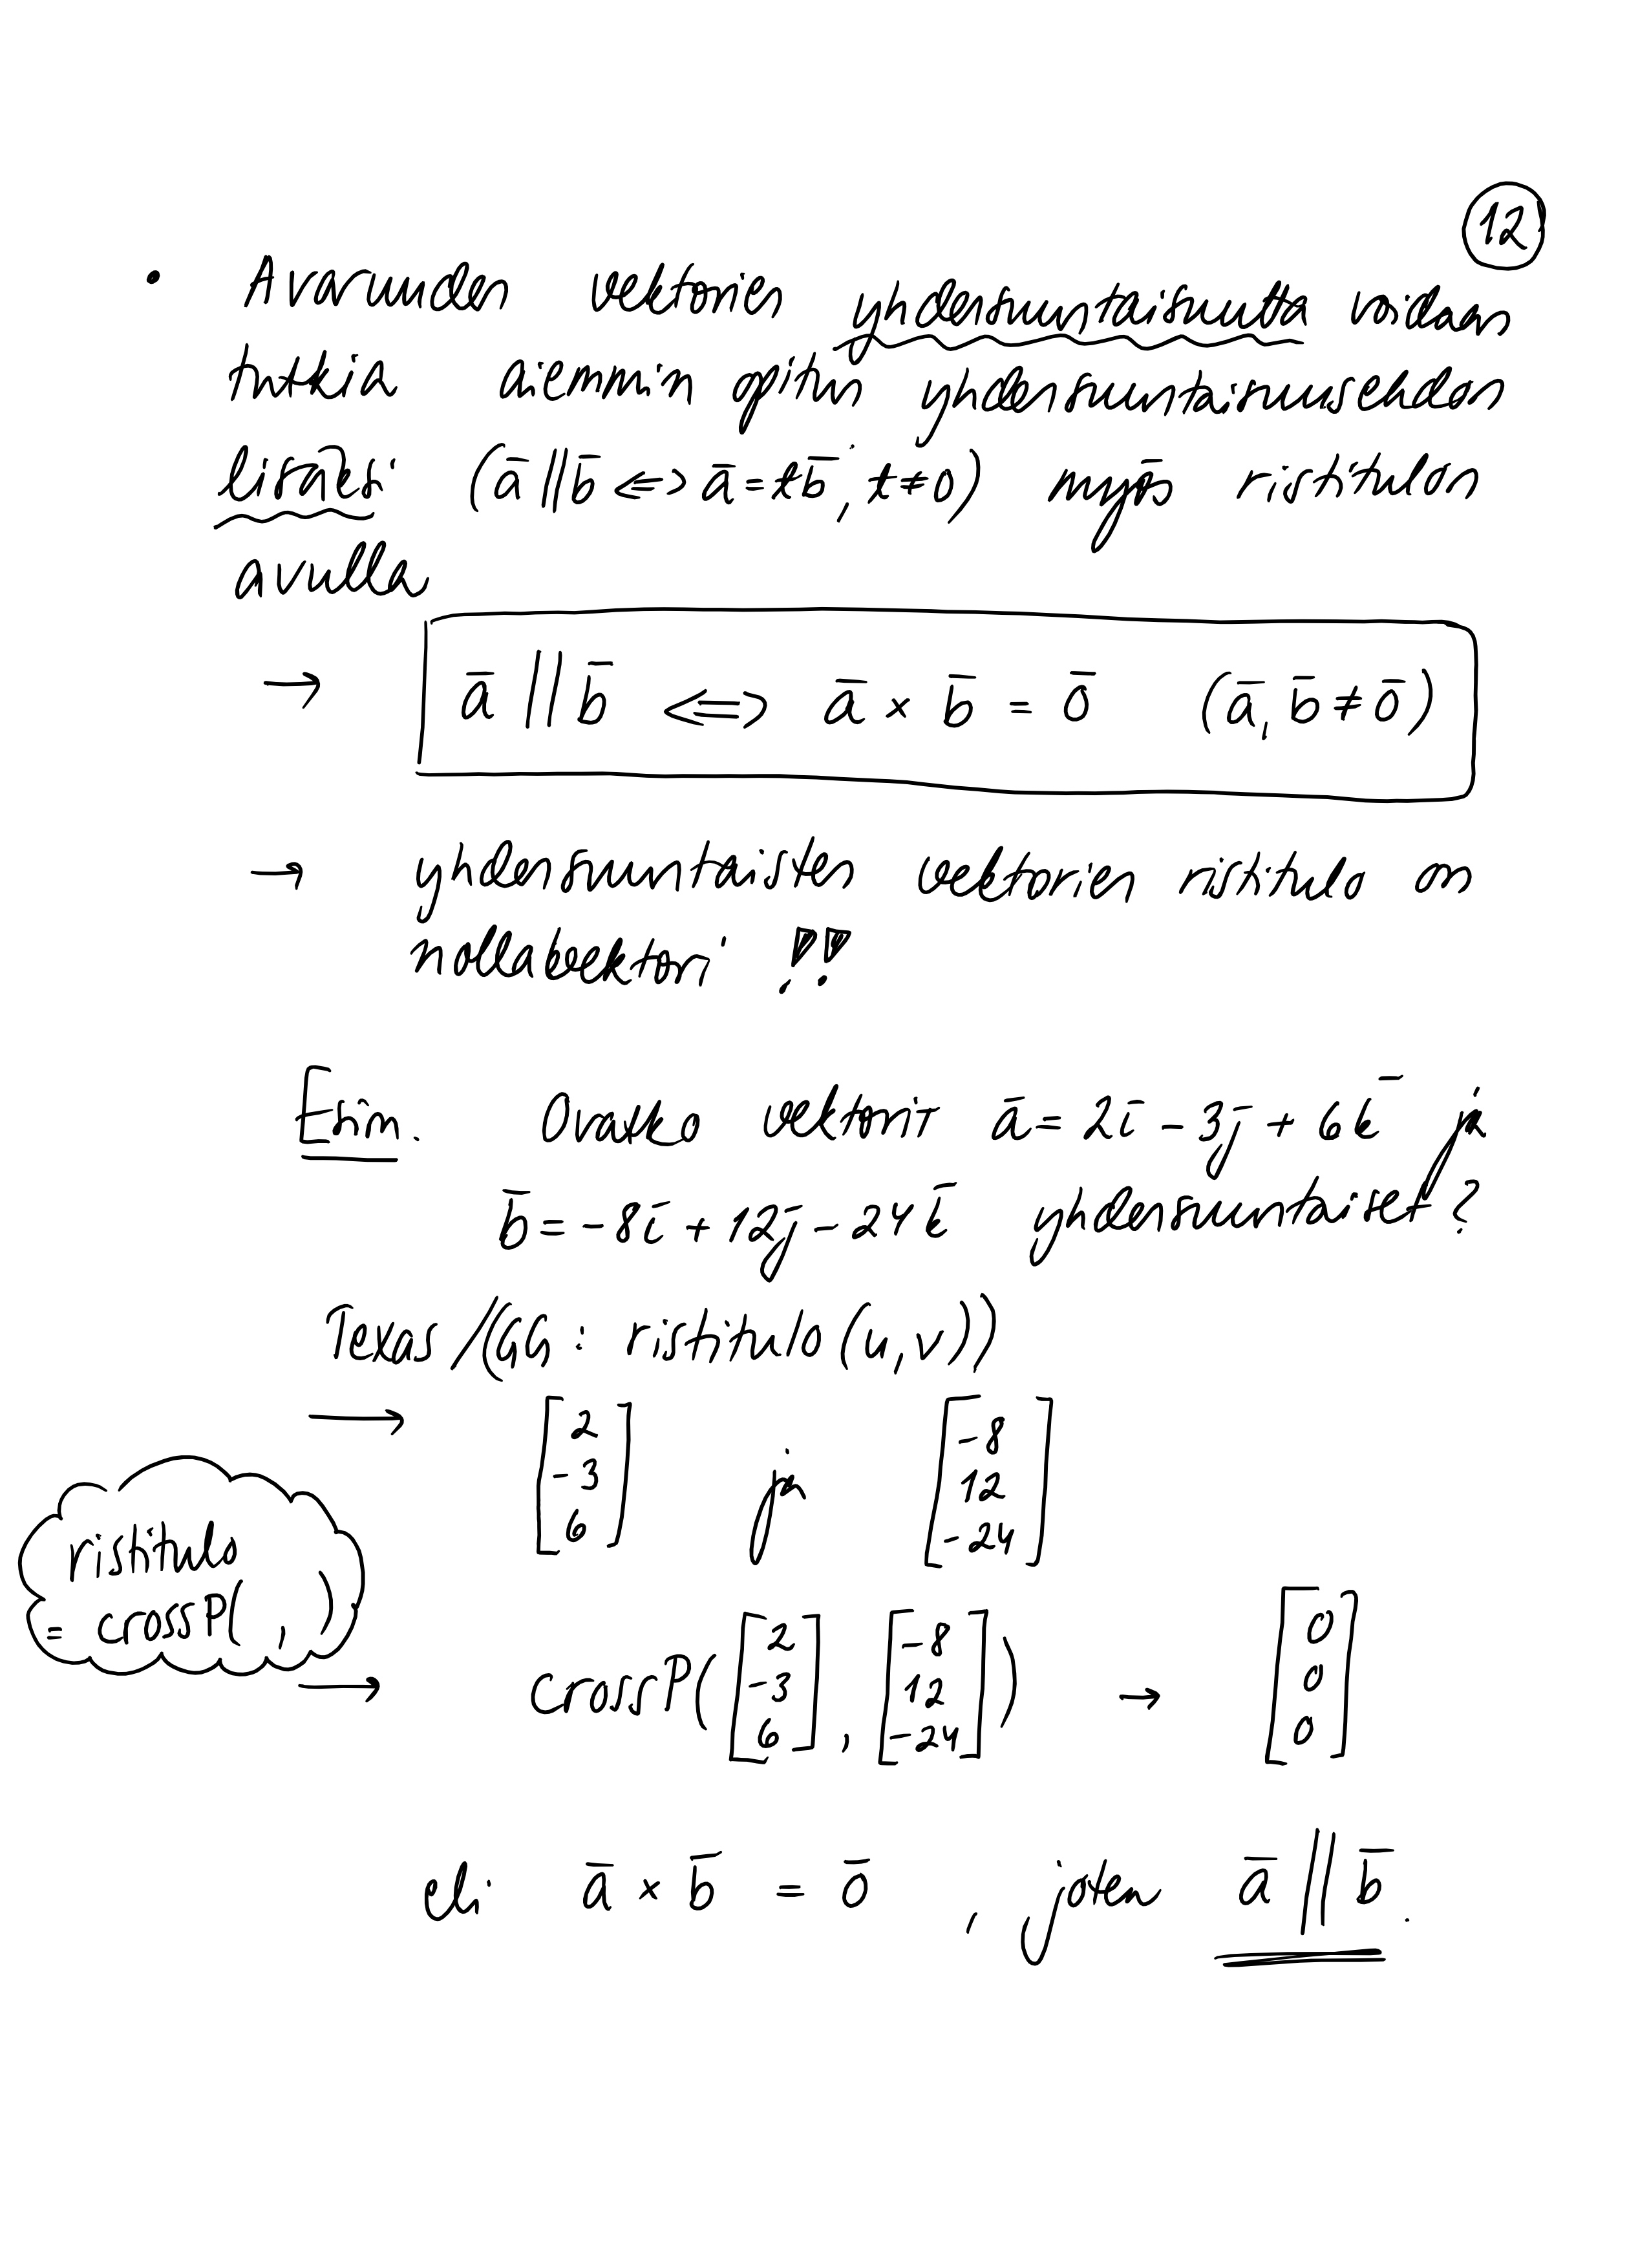 12
• Avaruuden vektorien yhdensuuntaisuutta voidaan
tutkia aiemmin opitun yhdensuuntaisuusehdon
lisäksi (a̅ ∥ b̅ <=> a̅ = t b̅, t ≠ 0) myös ristitulon
avulla
→ a̅ ∥ b̅ <=> a̅ × b̅ = 0̅ (a̅, b̅ ≠ 0̅)
→ yhdensuuntaisten vektorien ristitulo on
nollavektori !!
Esim. Ovatko vektorit a̅ = 2i̅ - 3j̅ + 6k̅ ja
b̅ = -8i̅ + 12j̅ - 24k̅ yhdensuuntaiset?
Texas /(GG: ristitulo(u,v))
→ [2 -3 6] ja [-8 12 -24]
ristitulo
= crossP( , )
→ crossP([2 -3 6], [-8 12 -24]) → [0 0 0]
eli a̅ × b̅ = 0̅, joten a̅ ∥ b̅.